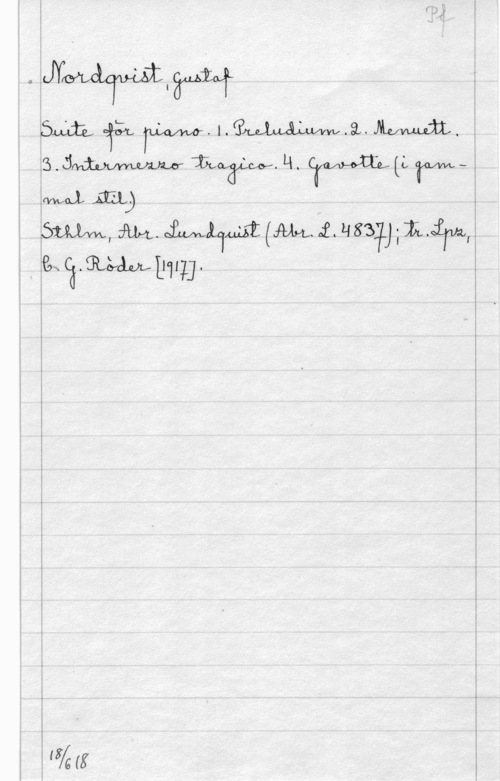 Pf
Nordqvist, Gustaf
Suite för piano. 1. Preludium. 2. Menuett.
3. Intermezzo tragico. 4. Gavotte (i gam-
mal stil)
Sthlm, Abr. Lundquist (Abr. L. 4837); tr. Lpz,
C. G. Röder [1917].
18/6 18